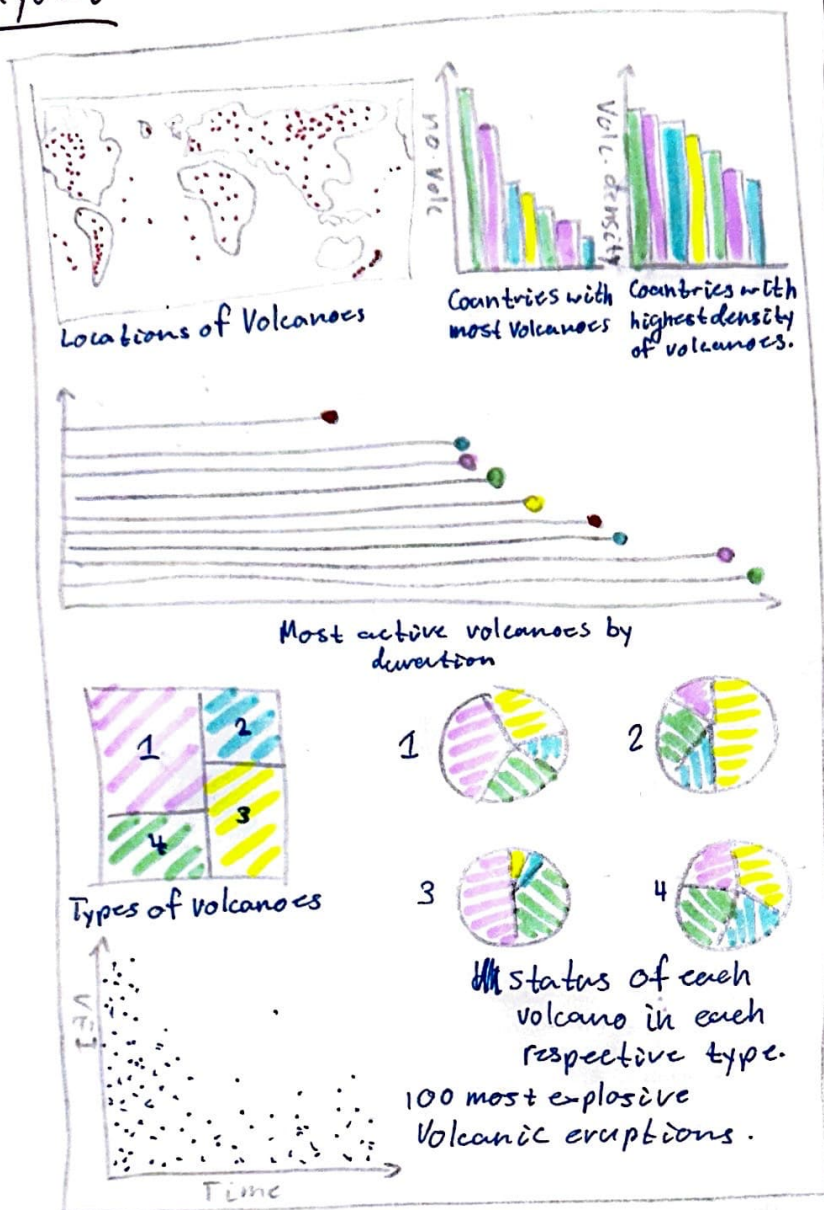 no. Volc
Volc. density
Locations of Volcanoes
Countries with
most Volcanoes
Countries with
highest density
of volcanoes.
Most active volcanoes by
duration
1
2
3
4
Types of volcanoes
1
2
3
4
status of each
volcano in each
respective type.
VEI
Time
100 most explosive
Volcanic eruptions.